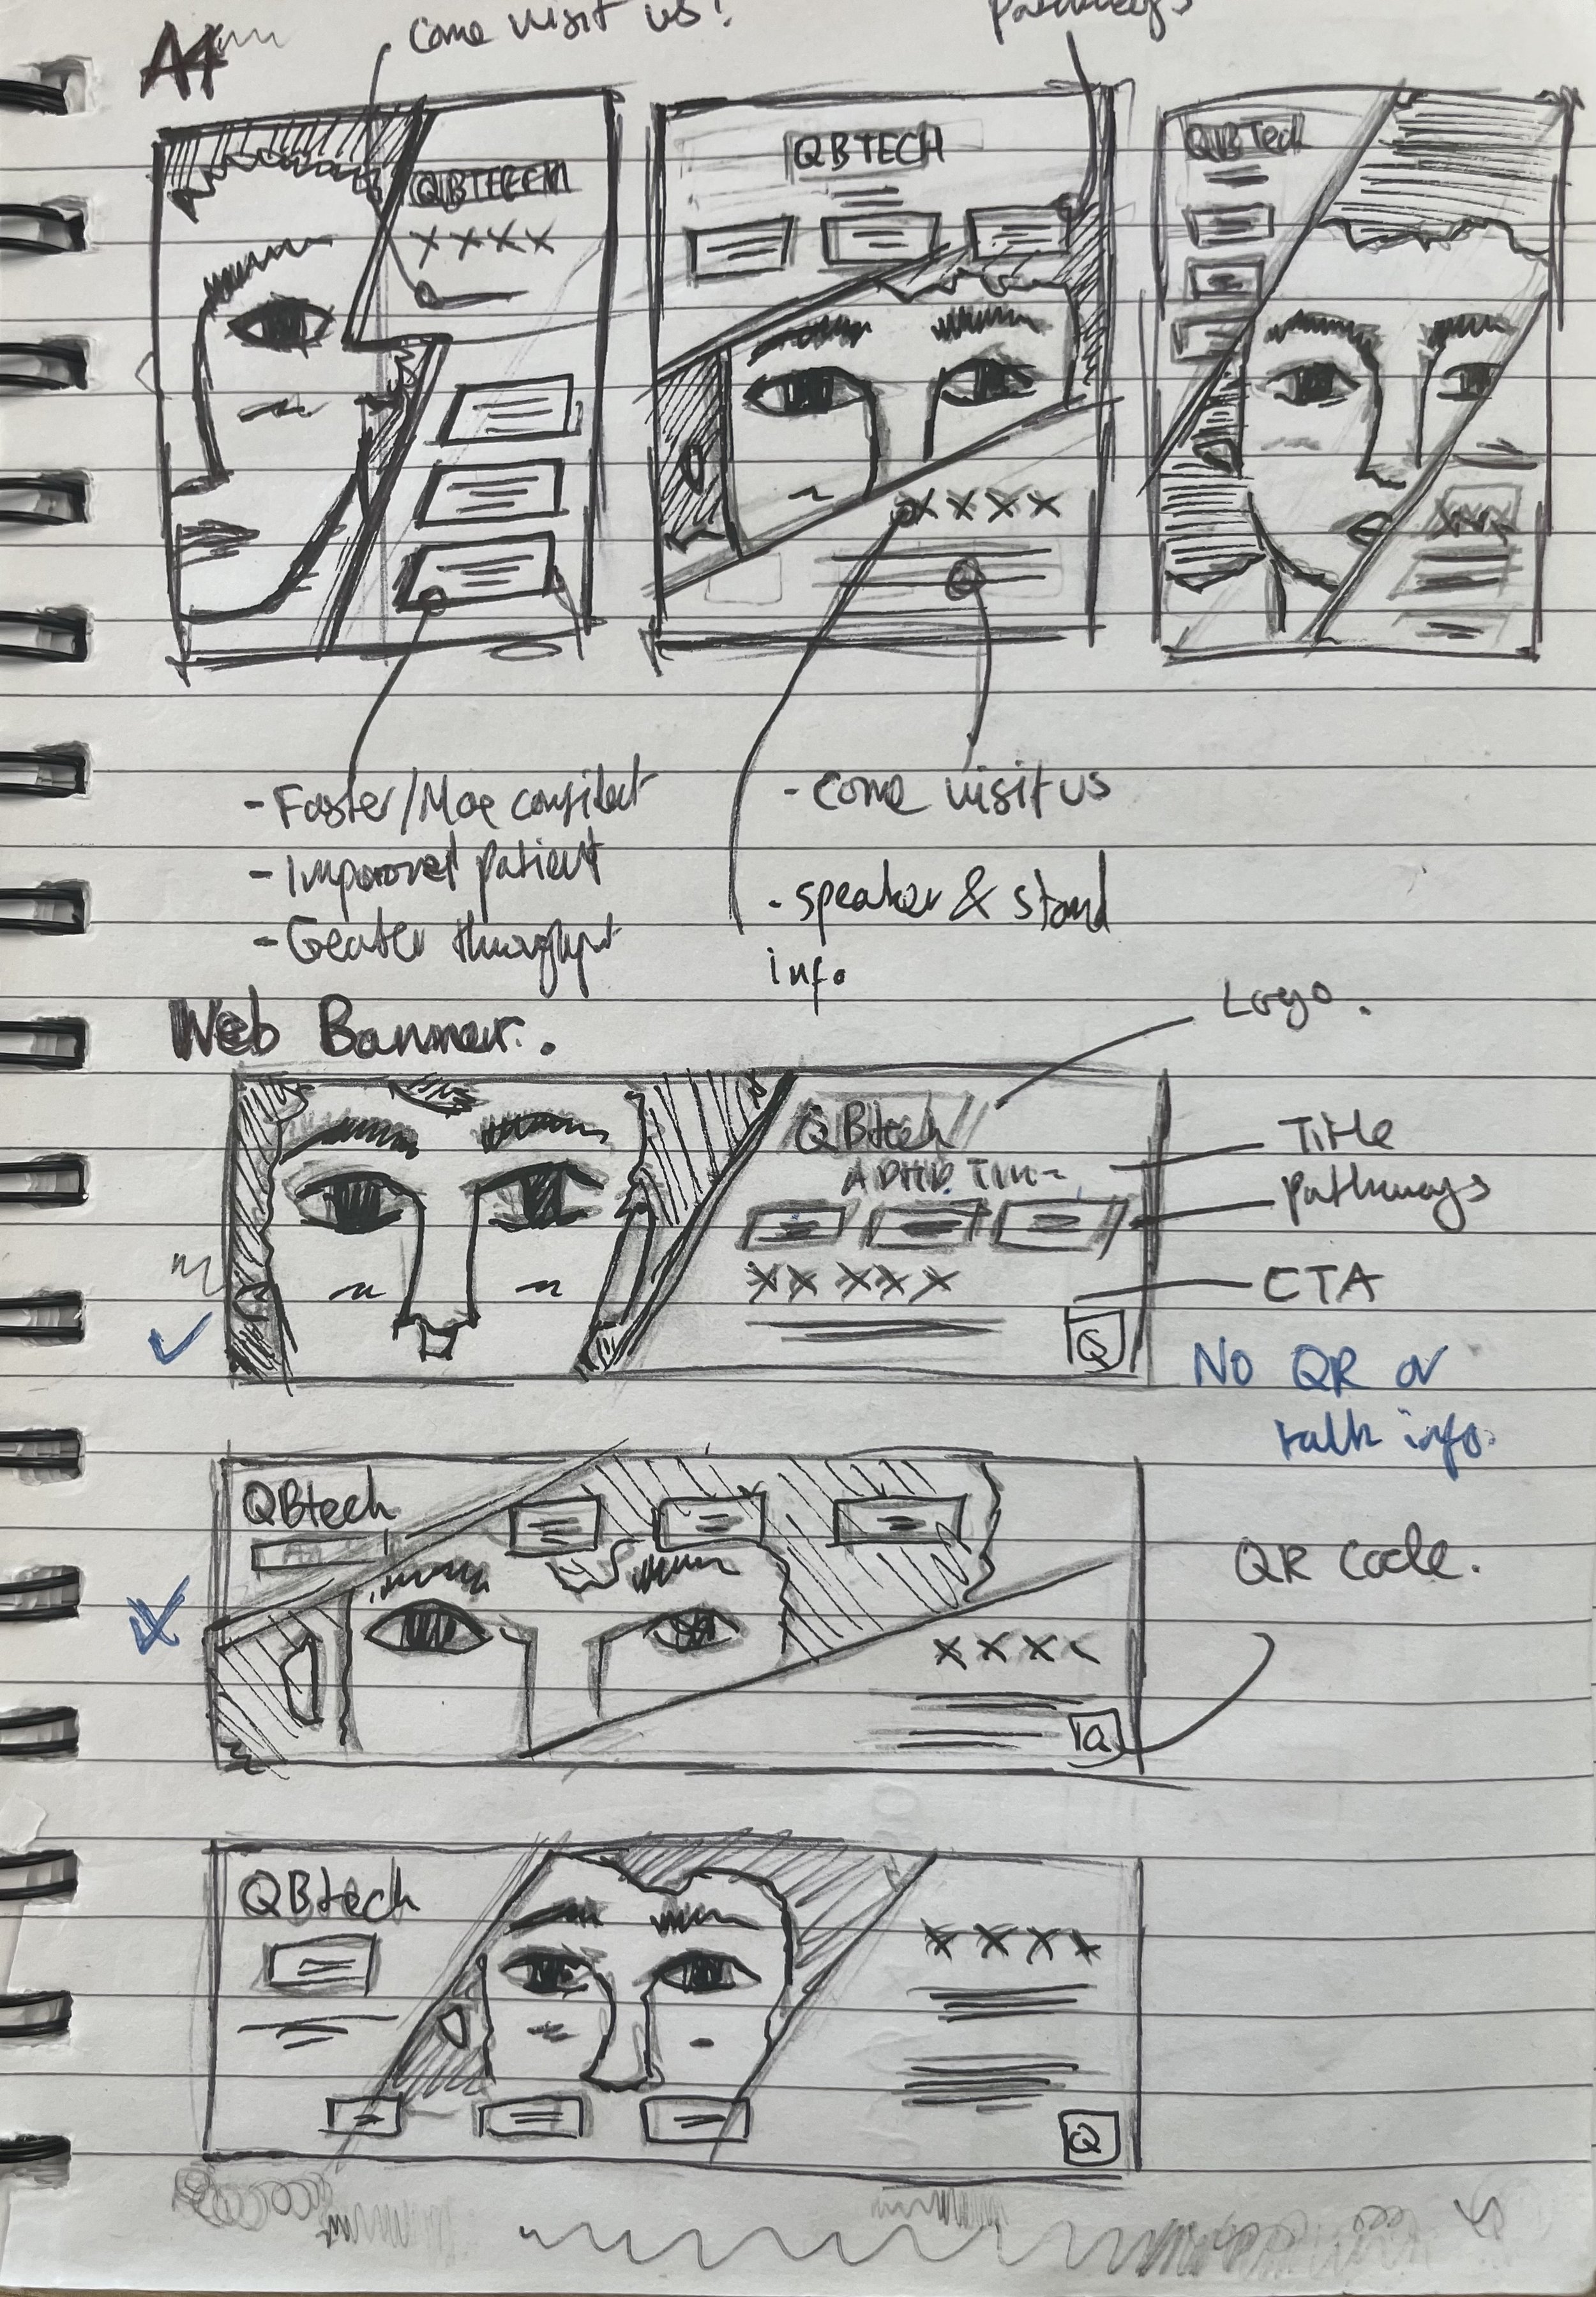 Come visit us!
Pathways
A4
QBTEEECH
XXXX
QBTECH
QBTech
XXXX
- Faster/More confident
- Improved patient
- Greater throughput
- Come visit us
- speaker & stand
info.
Web Banner.
Logo.
QBtech
ADHD Tim-
Title
pathways
XXXXX
CTA
Q
No QR or
talk info.
QBtech
QR code.
XXX
Q
QBtech
XXXX
Q